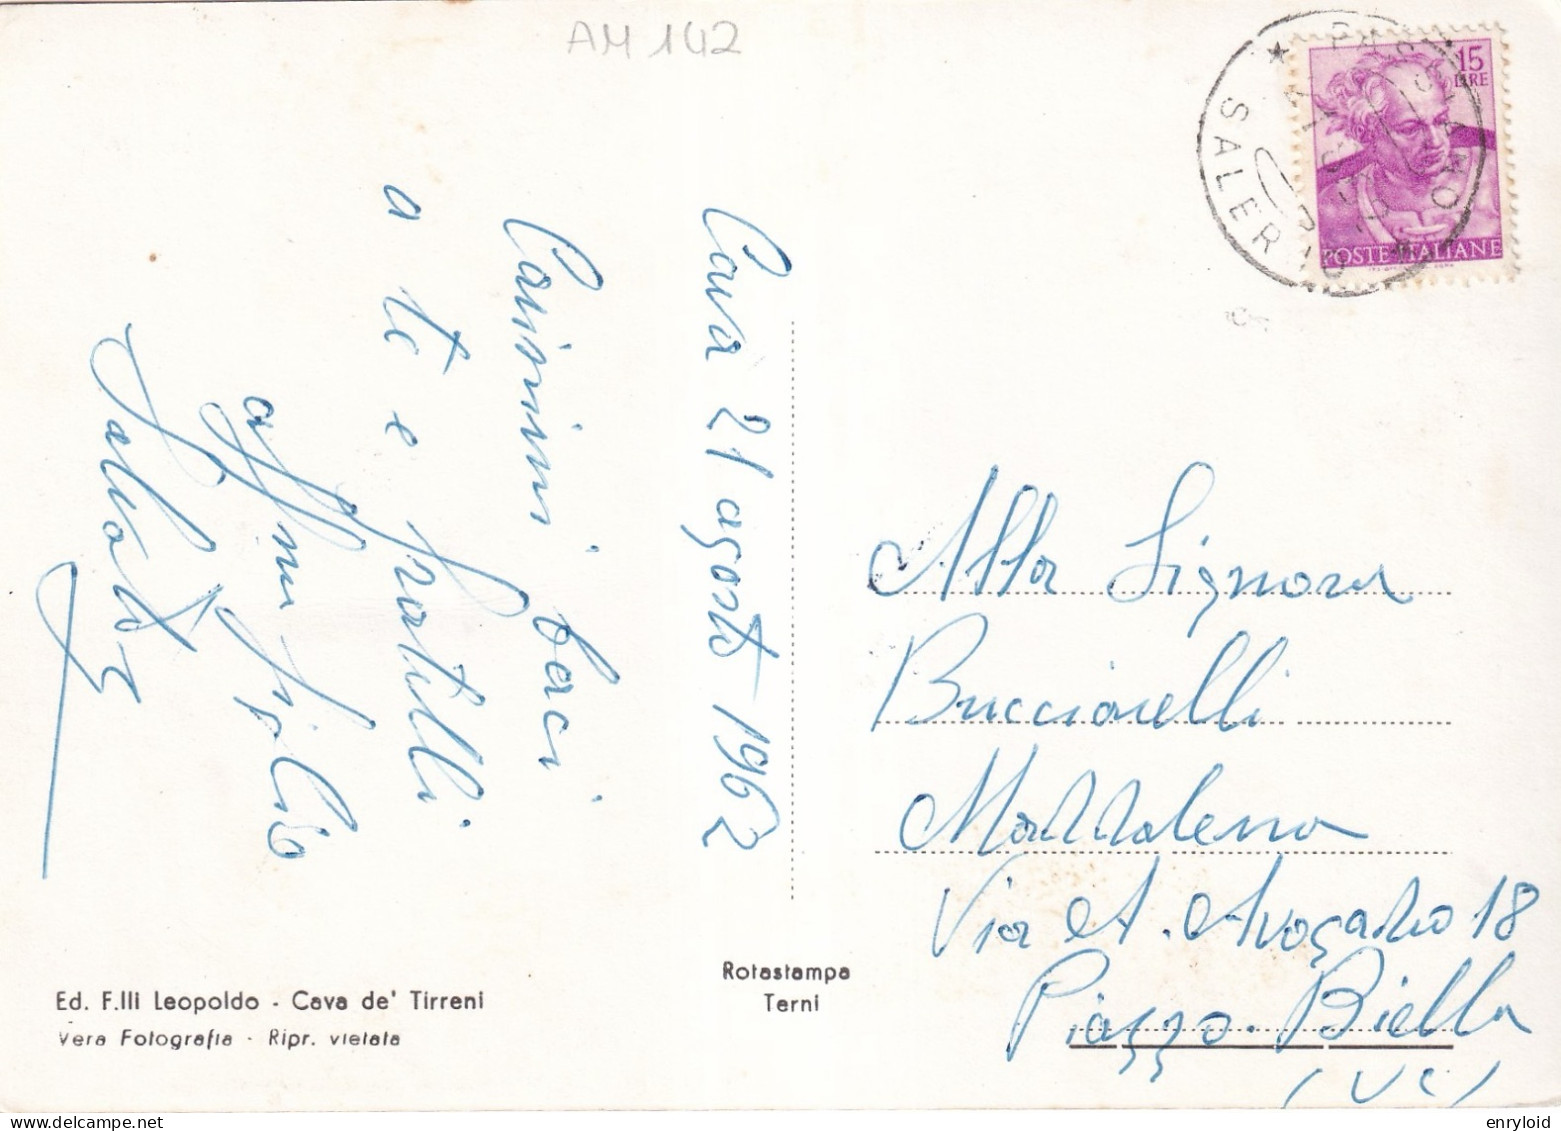 AM 142
Cava 21 agosto 1962
Carissimi baci
a te e fratelli
aff.mi figlio
15
LIRE
POSTE ITALIANE
SALERNO
Alla Signora
Bucciarelli
Maddalena
Via A. Avogadro 18
Piazzo. Biella
(VC)
Rotastampa
Terni
Ed. F.lli Leopoldo - Cava de' Tirreni
Vera Fotografia - Ripr. vietata
enryloid